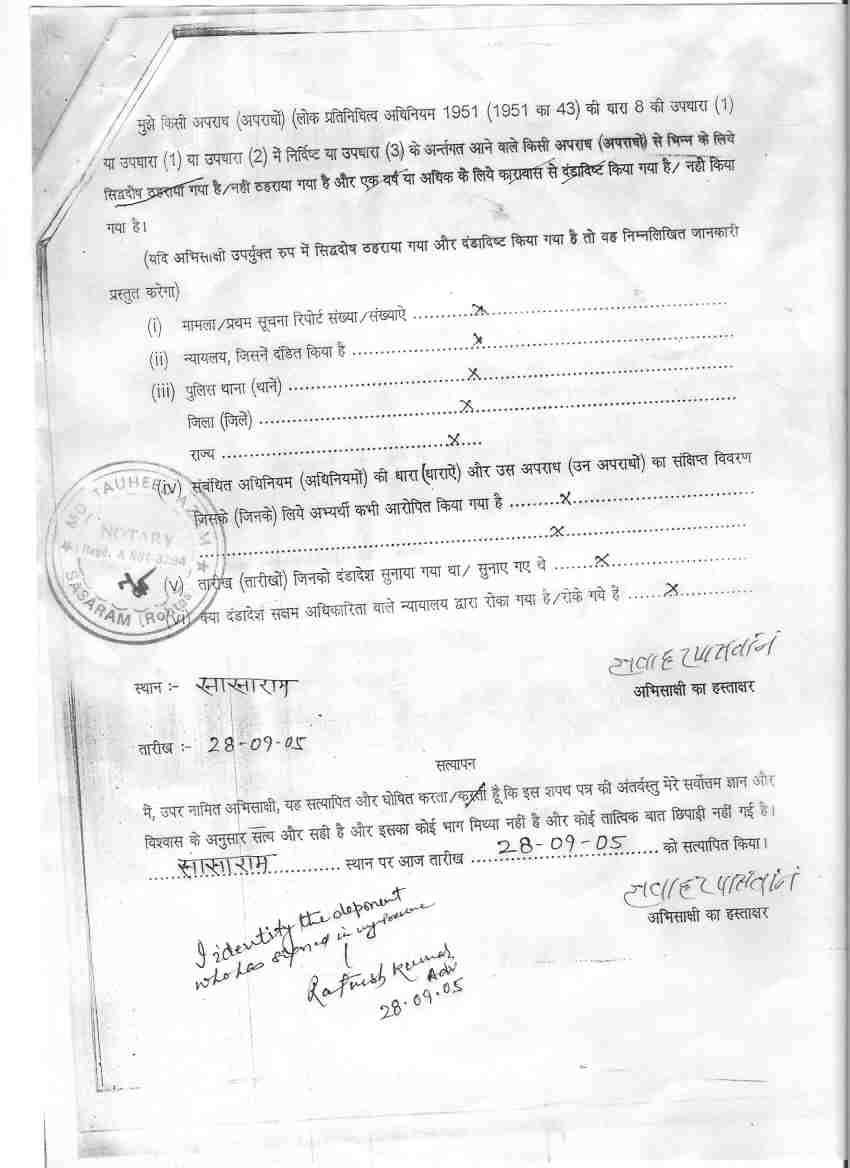 मुझे किसी अपराध (अपराधों) (लोक प्रतिनिधित्व अधिनियम 1951 (1951 का 43) की धारा 8 की उपधारा (1)
या उपधारा (1) या उपधारा (2) में निर्दिष्ट या उपधारा (3) के अर्न्तगत आने वाले किसी अपराध (अपराधों) से भिन्न के लिये
सिद्वदोष ठहराया गया है/नहीं ठहराया गया है और एक वर्ष या अधिक के लिये कारावास से दंडाविष्ट किया गया है/ नहीं किया
गया है।
(यदि अभिसाक्षी उपर्युक्त रुप में सिद्वदोष ठहराया गया और दंडाविष्ट किया गया है तो वह निम्नलिखित जानकारी
प्रस्तुत करेगा)
(i) मामला/प्रथम सूचना रिपोर्ट संख्या/संख्याऐं ........x........
(ii) न्यायलय, जिसनें दंडित किया है ........x........
(iii) पुलिस थाना (थानें) ........x........
जिला (जिलें) ........x........
राज्य ........x....
(iv) संबंधित अधिनियम (अधिनियमों) की धारा (धाराऐं) और उस अपराध (उन अपराधों) का संक्षिप्त विवरण
जिसके (जिनके) लिये अभ्यर्थी कभी आरोपित किया गया है ........x........
........x........
(v) तारीख (तारीखों) जिनको दंडादेश सुनाया गया था/ सुनाए गए थे ......x........
(vi) क्या दंडादेश सक्षम अधिकारिता वाले न्यायालय द्वारा रोका गया है/रोके गये हैं ......x........
NOTARY
SASARAM
स्थान :- सासाराम
पासवान
अभिसाक्षी का हस्ताक्षर
तारीख :- 28-09-05
सत्यापन
में, उपर नामित अभिसाक्षी, यह सत्यापित और घोषित करता/करती हूँ कि इस शपथ पत्र की अंतर्वस्तु मेरे सर्वोत्तम ज्ञान और
विश्वास के अनुसार सत्य और सही है और इसका कोई भाग मिथ्या नहीं है और कोई तात्विक बात छिपाई नहीं गई है।
सासाराम ........ स्थान पर आज तारीख ...28-09-05... को सत्यापित किया।
पासवान
अभिसाक्षी का हस्ताक्षर
I identify the deponent
who has signed in my presence
Kumar
Adv
28.09.05